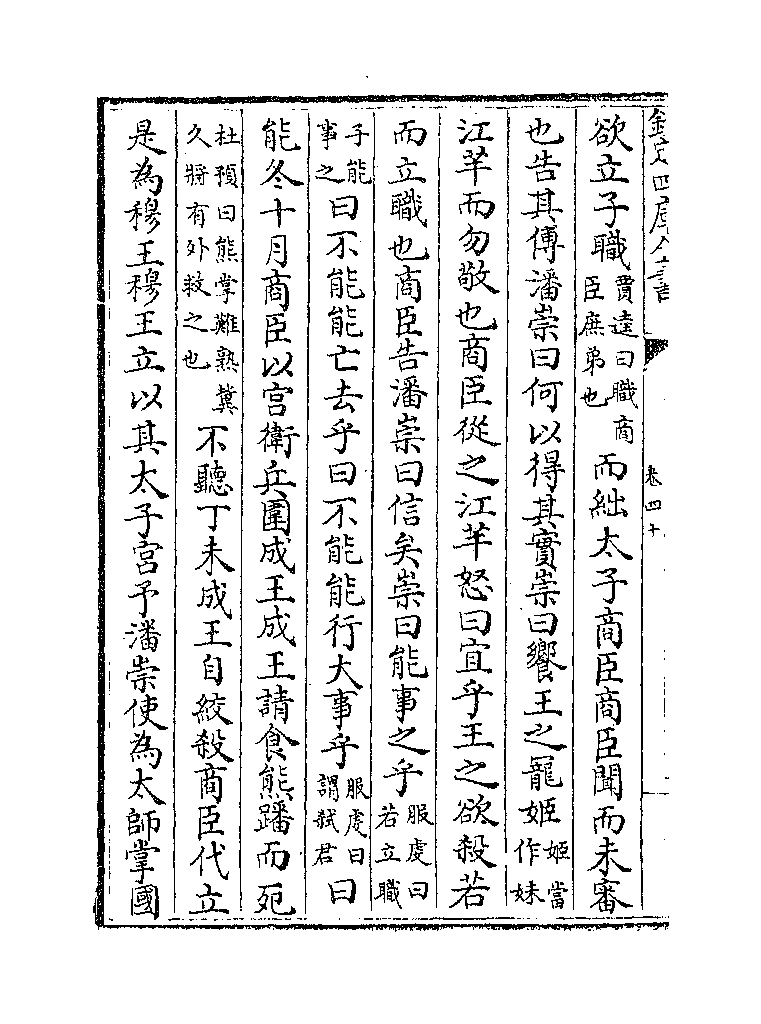 欽定四庫全書
卷四十
欲立子職賈逵曰職商臣庶弟也而絀太子商臣商臣聞而未審
也告其傅潘崇曰何以得其實崇曰饗王之寵姬姬當作妹
江芉而勿敬也商臣從之江芉怒曰宜乎王之欲殺若
而立職也商臣告潘崇曰信矣崇曰能事之乎服虔曰若立職
子能事之曰不能能亡去乎曰不能能行大事乎服虔曰謂弒君曰
能冬十月商臣以宫衛兵圍成王成王請食熊蹯而死
杜預曰熊掌難熟冀久將有外救之也不聽丁未成王自絞殺商臣代立
是為穆王穆王立以其太子宫予潘崇使為太師掌國